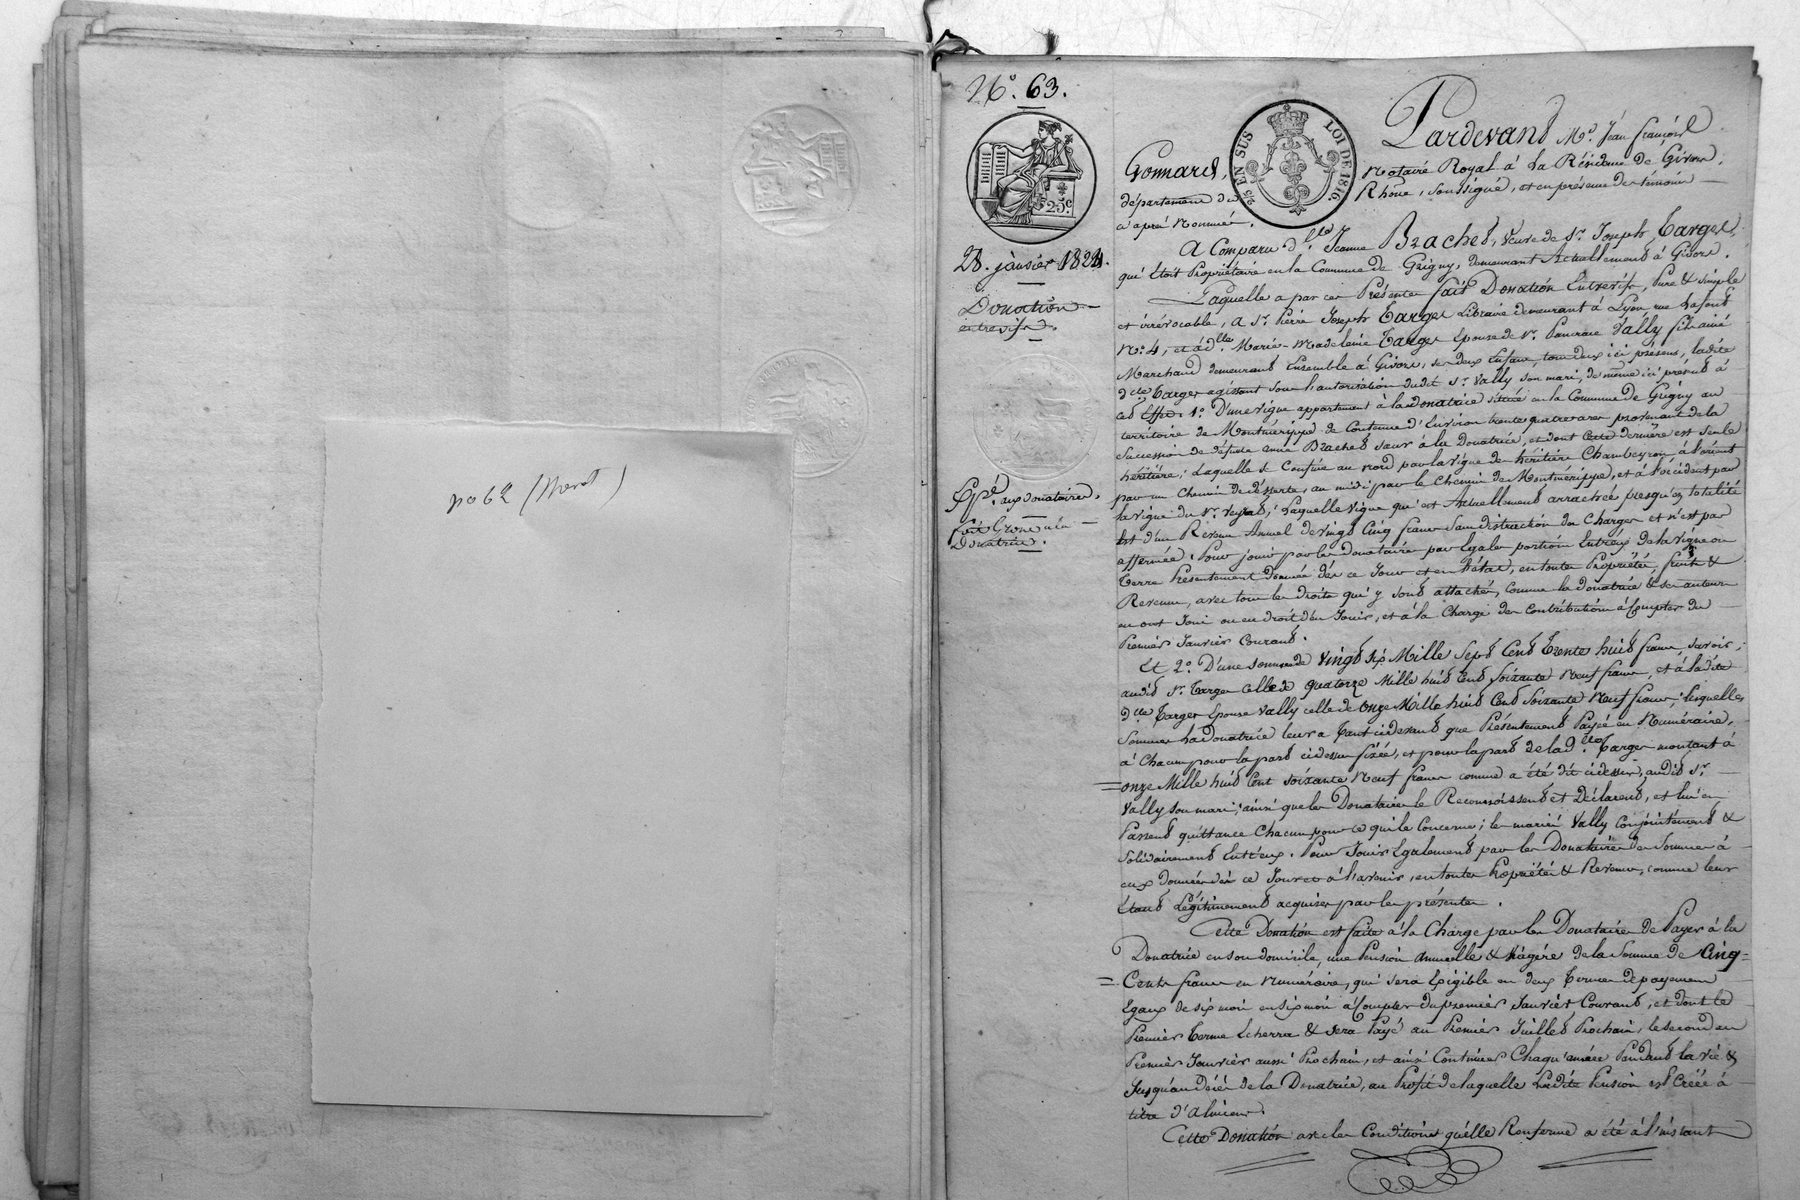 no 62 (
N.° 63.
25c
28. janvier 1824.
Donation
entrevifs.
Epé. aux donataires.
Donatrice.
2/5 EN SUS LOI DE 1816.
Pardevant Me. Jean françois
Gonnard, Notaire Royal à La Résidence de Givors,
département du Rhône, soussigné, et en présence des témoins
ci après Nommés.
A Comparu de. Jeanne Brachet, veuve de Sr. Joseph Targe,
qui Etoit Propriétaire en la Commune de Grigny, demeurant Actuellement à Givors.
Laquelle a par ces Présentes fait Donation Entrevifs, Pure & simple
et irrévocable, A Sr. Pierre Joseph Targe Libraire demeurant à Lyon, rue Lafont
N.° 4, et à dlle. Marie-Madeleine Targe Epouse de Sr. Pancrace Vally fils ainé
Marchand demeurant Ensemble à Givors, ses deux Enfans, tous deux ici présens, ladite
dlle Targe agissant sous l'autorisation dudit Sr. Vally son mari, de même ici présent à
cet effet. 1.° D'une vigne appartenant à la donatrice située en la Commune de Grigny au
territoire de Montmérippe de Contenue d'Environ trente quatre ares provenant de la
succession de défunte Brachet sœur à la Donatrice, et dont cette dernière est seule
héritière; Laquelle se Confine au nord par la vigne des héritiers Chambeyron, à l'orient
par un Chemin de désserte, au midi par le Chemin de Montmérippe, et à l'occident par
la vigne du Sr. Veyrat; Laquelle vigne qui est Actuellement arrachée presqu'en totalité
est d'un Revenu Annuel de vingt Cinq francs sans distraction des Charges et n'est pas
affermée. Pour jouir par les donataires par Egales portions Entr'eux de la vigne ou
terre Présentement donnée dès ce Jour et en l'état, en toute Propriété, fruits &
Revenus, avec tous les droits qui y sont attachés, comme la donatrice & ses auteurs
en ont Joui ou eu droit d'en Jouir, et à la Charge des Contributions à Compter du
Premier Janvier Courant.
Et 2.° D'une somme de vingt six Mille Sept Cent Trente huit francs, savoir;
audit Sr. Targe celle de quatorze Mille huit Cent Soixante Neuf francs, et à ladite
dlle Targe Epouse Vally celle de onze Mille huit Cent Soixante Neuf francs, lesquelles
Sommes la donatrice leur a tant cidevant que Présentement Payée en Numéraire,
à Chacun pour la part cidessus fixée, et pour la part de lad. dlle Targe montant à
onze Mille huit Cent soixante Neuf francs comme a été dit cidessus, audit Sr.
Vally son mari; ainsi que les Donataires le Reconnoissent et Déclarent, et lui en
Passent quittance Chacun pour ce qui le Concerne; les mariés Vally Conjointement &
Solidairement Entr'eux. Pour Jouir Egalement par les Donataires des Sommes à
eux données dès ce Jour et à l'avenir, en toutes Propriétés & Revenus, comme leur
étant Légitimement acquises par les présentes.
Cette Donation est faite à la Charge par les Donataires de Payer à la
Donatrice en son domicile, une Pension Annuelle & Viagère de la Somme de Cinq
Cents francs en Numéraire, qui sera Exigible en deux Termes de payemens
Egaux de six mois en six mois à Compter du premier Janvier Courant, et dont le
Premier Terme Echerra & sera Payé au Premier Juillet Prochain, le second au
Premier Janvier aussi Prochain, et ainsi Continuer Chaqu'année Pendant la vie &
Jusqu'au décès de la Donatrice, au Profit de laquelle Ladite Pension est Créée à
titre d'Alimens.
Cette Donation avec les Conditions qu'elle Renferme a été à l'instant